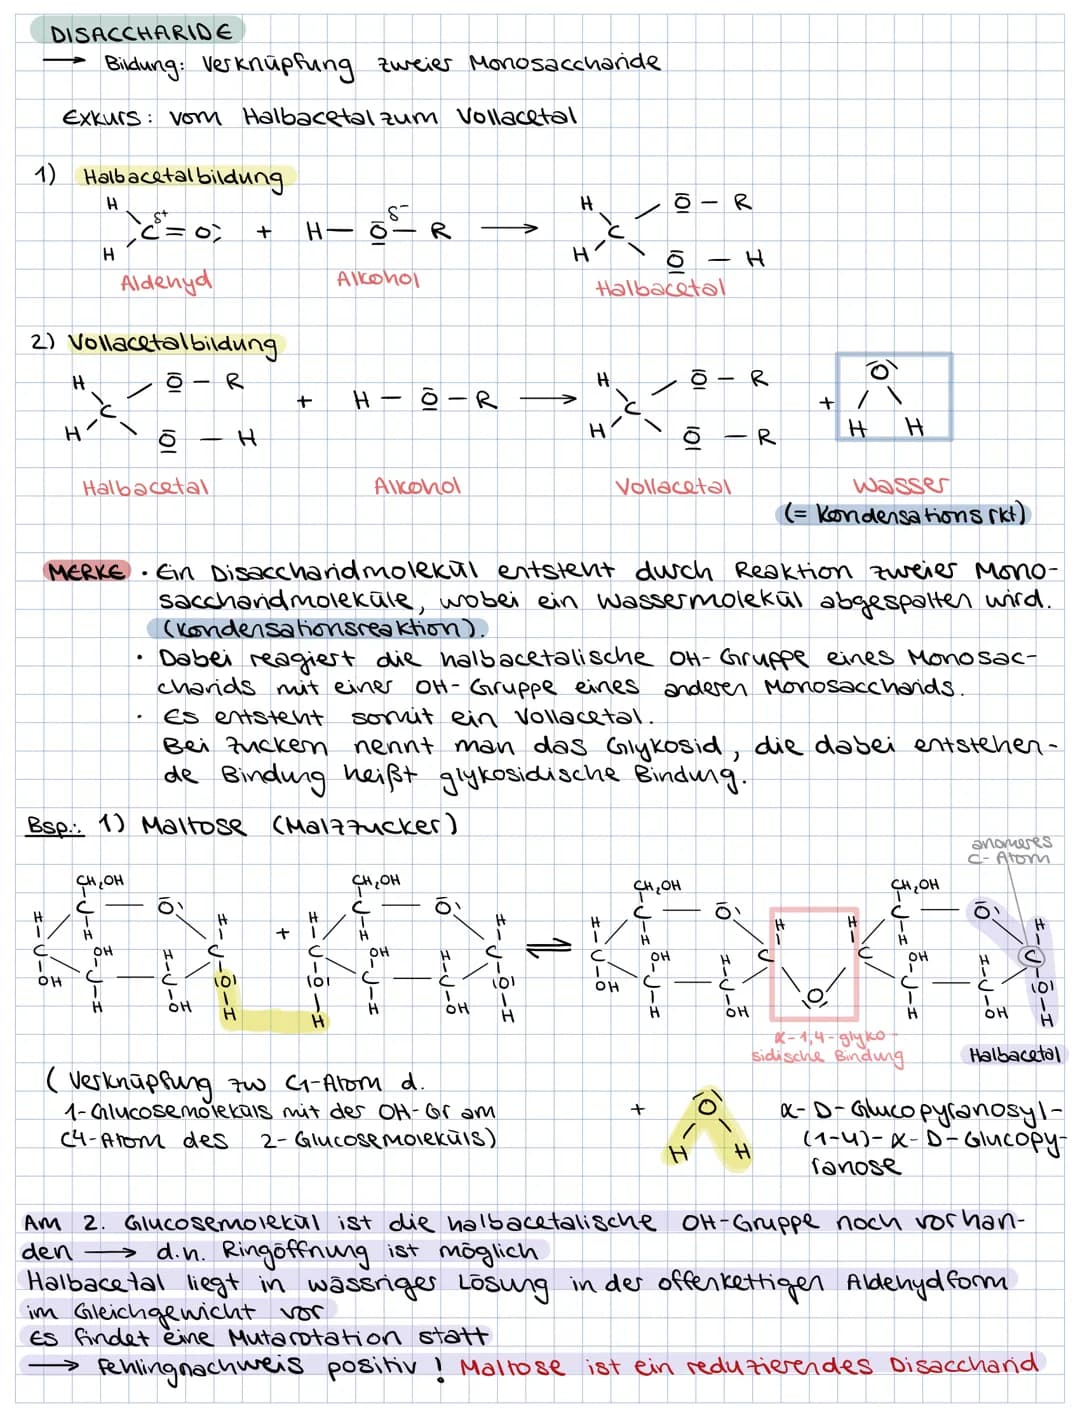 DISACCHARIDE
→ Bildung: Verknüpfung zweier Monosaccharide
Exkurs: vom Halbacetal zum Vollacetal
1) Halbacetalbildung
H H C δ+ = O + H – O δ- – R → H H C O – R O – H
Aldehyd Alkohol Halbacetal
2) Vollacetalbildung
H H C O – R O – H + H – O – R → H H C O – R O – R + O H H
Halbacetal Alkohol Vollacetal Wasser
(= Kondensationsrkt)
MERKE • Ein Disaccharidmolekül entsteht durch Reaktion zweier Mono-
saccharidmoleküle, wobei ein Wassermolekül abgespalten wird.
(Kondensationsreaktion).
• Dabei reagiert die halbacetalische OH-Gruppe eines Monosac-
charids mit einer OH-Gruppe eines anderen Monosaccharids.
• Es entsteht somit ein Vollacetal.
Bei Zuckern nennt man das Glykosid, die dabei entstehen-
de Bindung heißt glykosidische Bindung.
Bsp.: 1) Maltose (Malzzucker)
anomeres
C-Atom
CH₂OH CH₂OH CH₂OH CH₂OH
C O C O C O C O
H H H + H H H ⇌ H H H H H H
C OH H C C OH H C C OH H C C OH H C
OH C C IOI IOI C C IOI OH C C O C C IOI
H OH H H H OH H H OH H OH H
α-1,4-glyko-
sidische Bindung
Halbacetal
(Verknüpfung zw C1-Atom d.
1-Glucosemoleküls mit der OH-Gr am
C4-Atom des 2-Glucosemoleküls)
+ O H H
α-D-Glucopyranosyl-
(1-4)-α-D-Glucopy-
ranose
Am 2. Glucosemolekül ist die halbacetalische OH-Gruppe noch vorhan-
den → d.h. Ringöffnung ist möglich
Halbacetal liegt in wässriger Lösung in der offenkettigen Aldehydform
im Gleichgewicht vor
Es findet eine Mutarotation statt
→ Fehlingnachweis positiv! Maltose ist ein reduzierendes Disaccharid